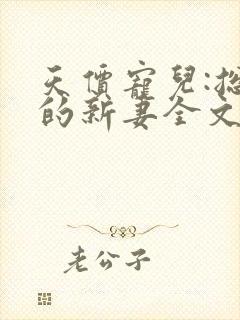 天價寵兒:總
的新妻全文
老公子